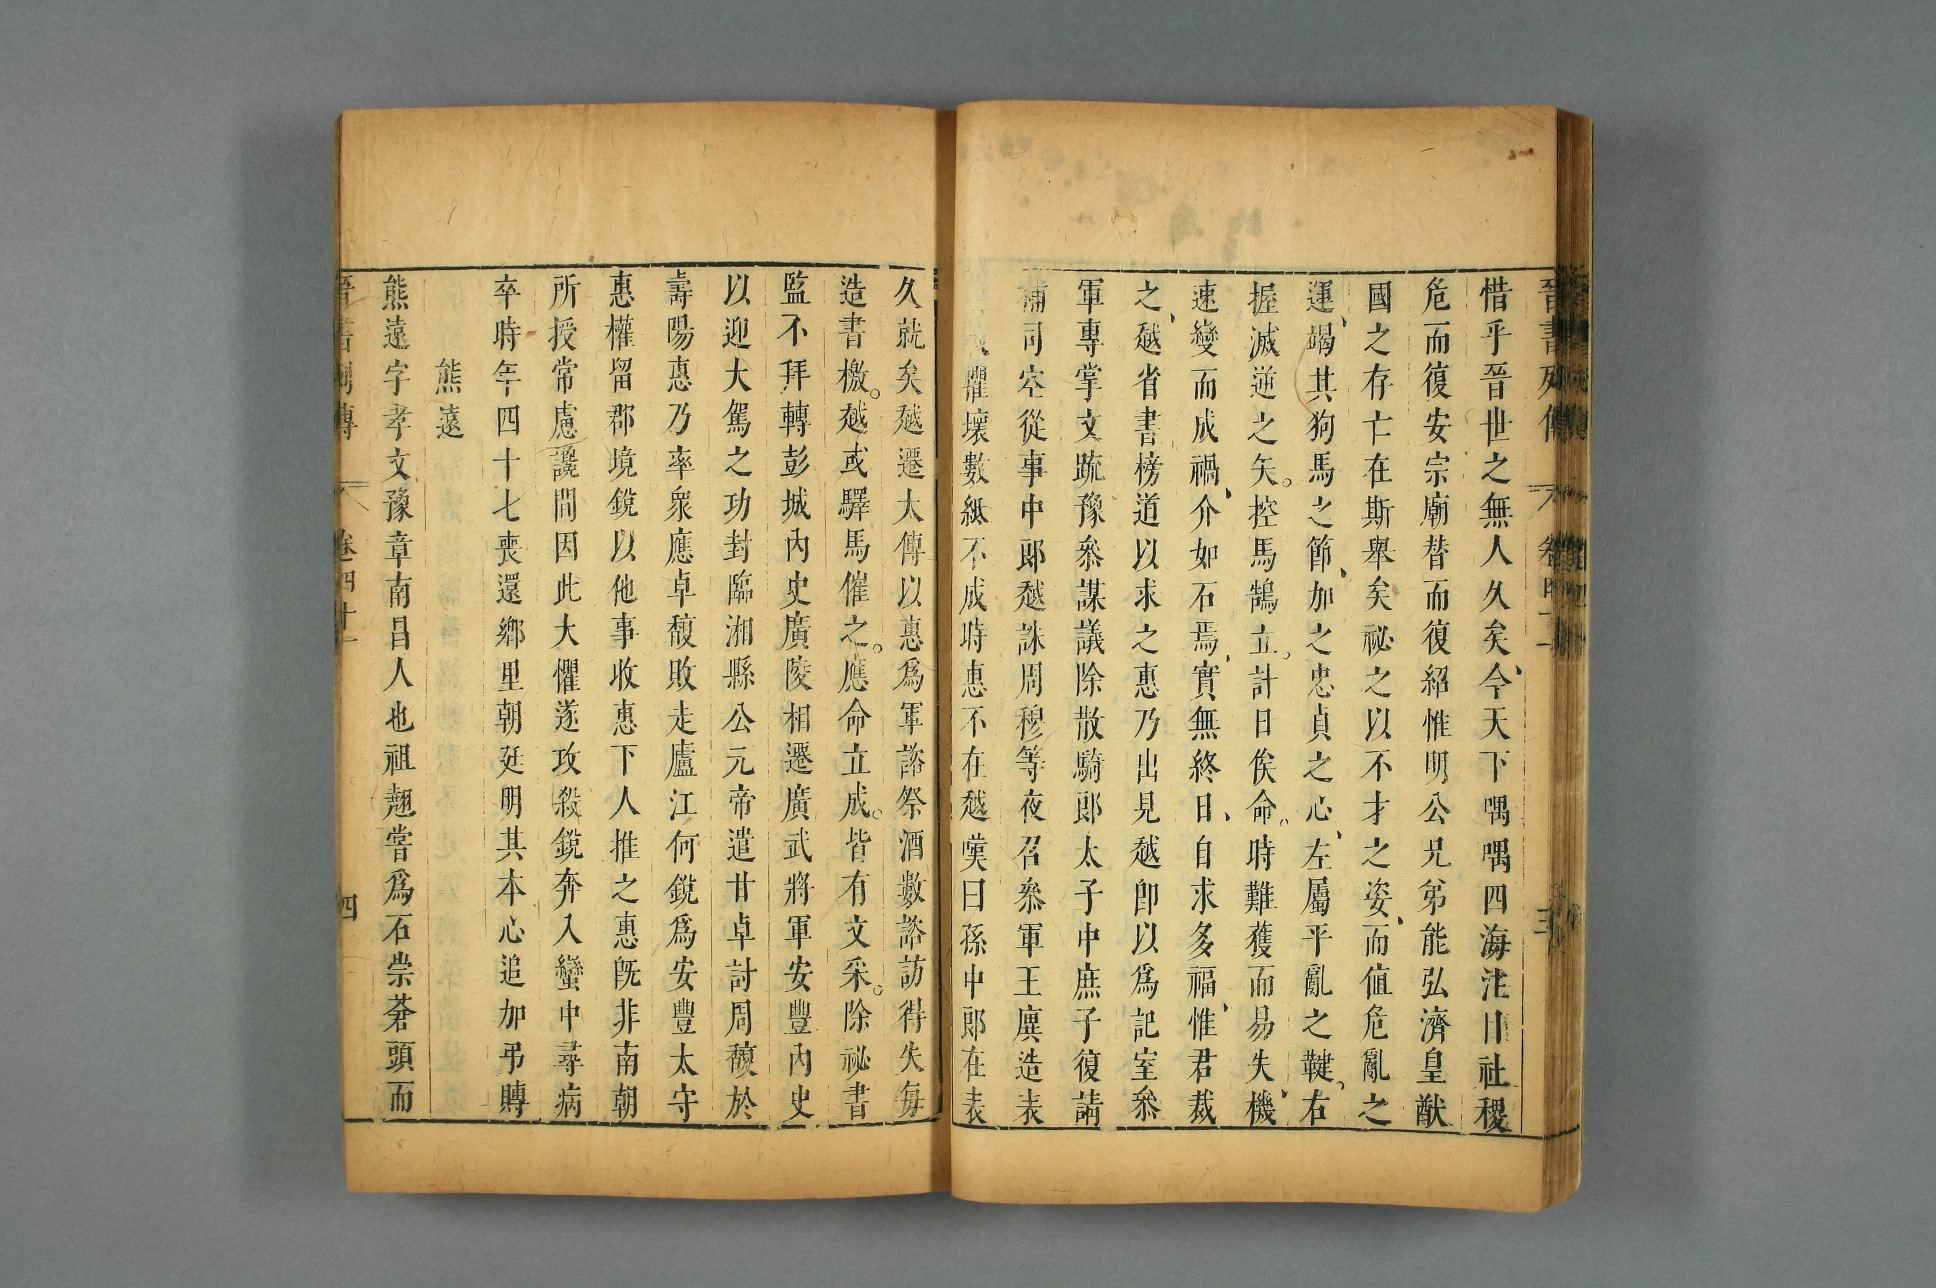 晉書列傳 卷四十一 三
惜乎晉世之無人久矣、今天下喁喁四海注目社稷
危而復安宗廟替而復紹惟明公兄弟能弘濟皇猷
國之存亡在斯舉矣祕之以不才之姿、而值危亂之
運、竭其狗馬之節、加之忠貞之心、左屬平亂之鞬、右
握滅逆之矢。控馬鵠立。計日俟命。時難獲而易失、機
速變而成禍、介如石焉、實無終日、自求多福、惟君裁
之、越省書榜道以求之惠乃出見越即以爲記室參
軍專掌文疏豫參謀議除散騎郎太子中庶子復請
補司空從事中郎越誅周穆等夜召參軍王廙造表
懼壞數紙不成時惠不在越歎曰孫中郎在表
久就矣越遷太傅以惠爲軍諮祭酒數諮訪得失每
造書檄。越或驛馬催之。應命立成。皆有文采。除祕書
監不拜轉彭城內史廣陵相遷廣武將軍安豐內史
以迎大駕之功封臨湘縣公元帝遣甘卓討周馥於
壽陽惠乃率衆應卓馥敗走廬江何銳爲安豐太守
惠權留郡境銳以他事收惠下人推之惠旣非南朝
所授常慮讒間因此大懼遂攻殺銳奔入蠻中尋病
卒時年四十七喪還鄉里朝廷明其本心追加弔賻
熊遠
熊遠字孝文豫章南昌人也祖翹嘗爲石崇蒼頭而
晉書列傳 卷四十一 四